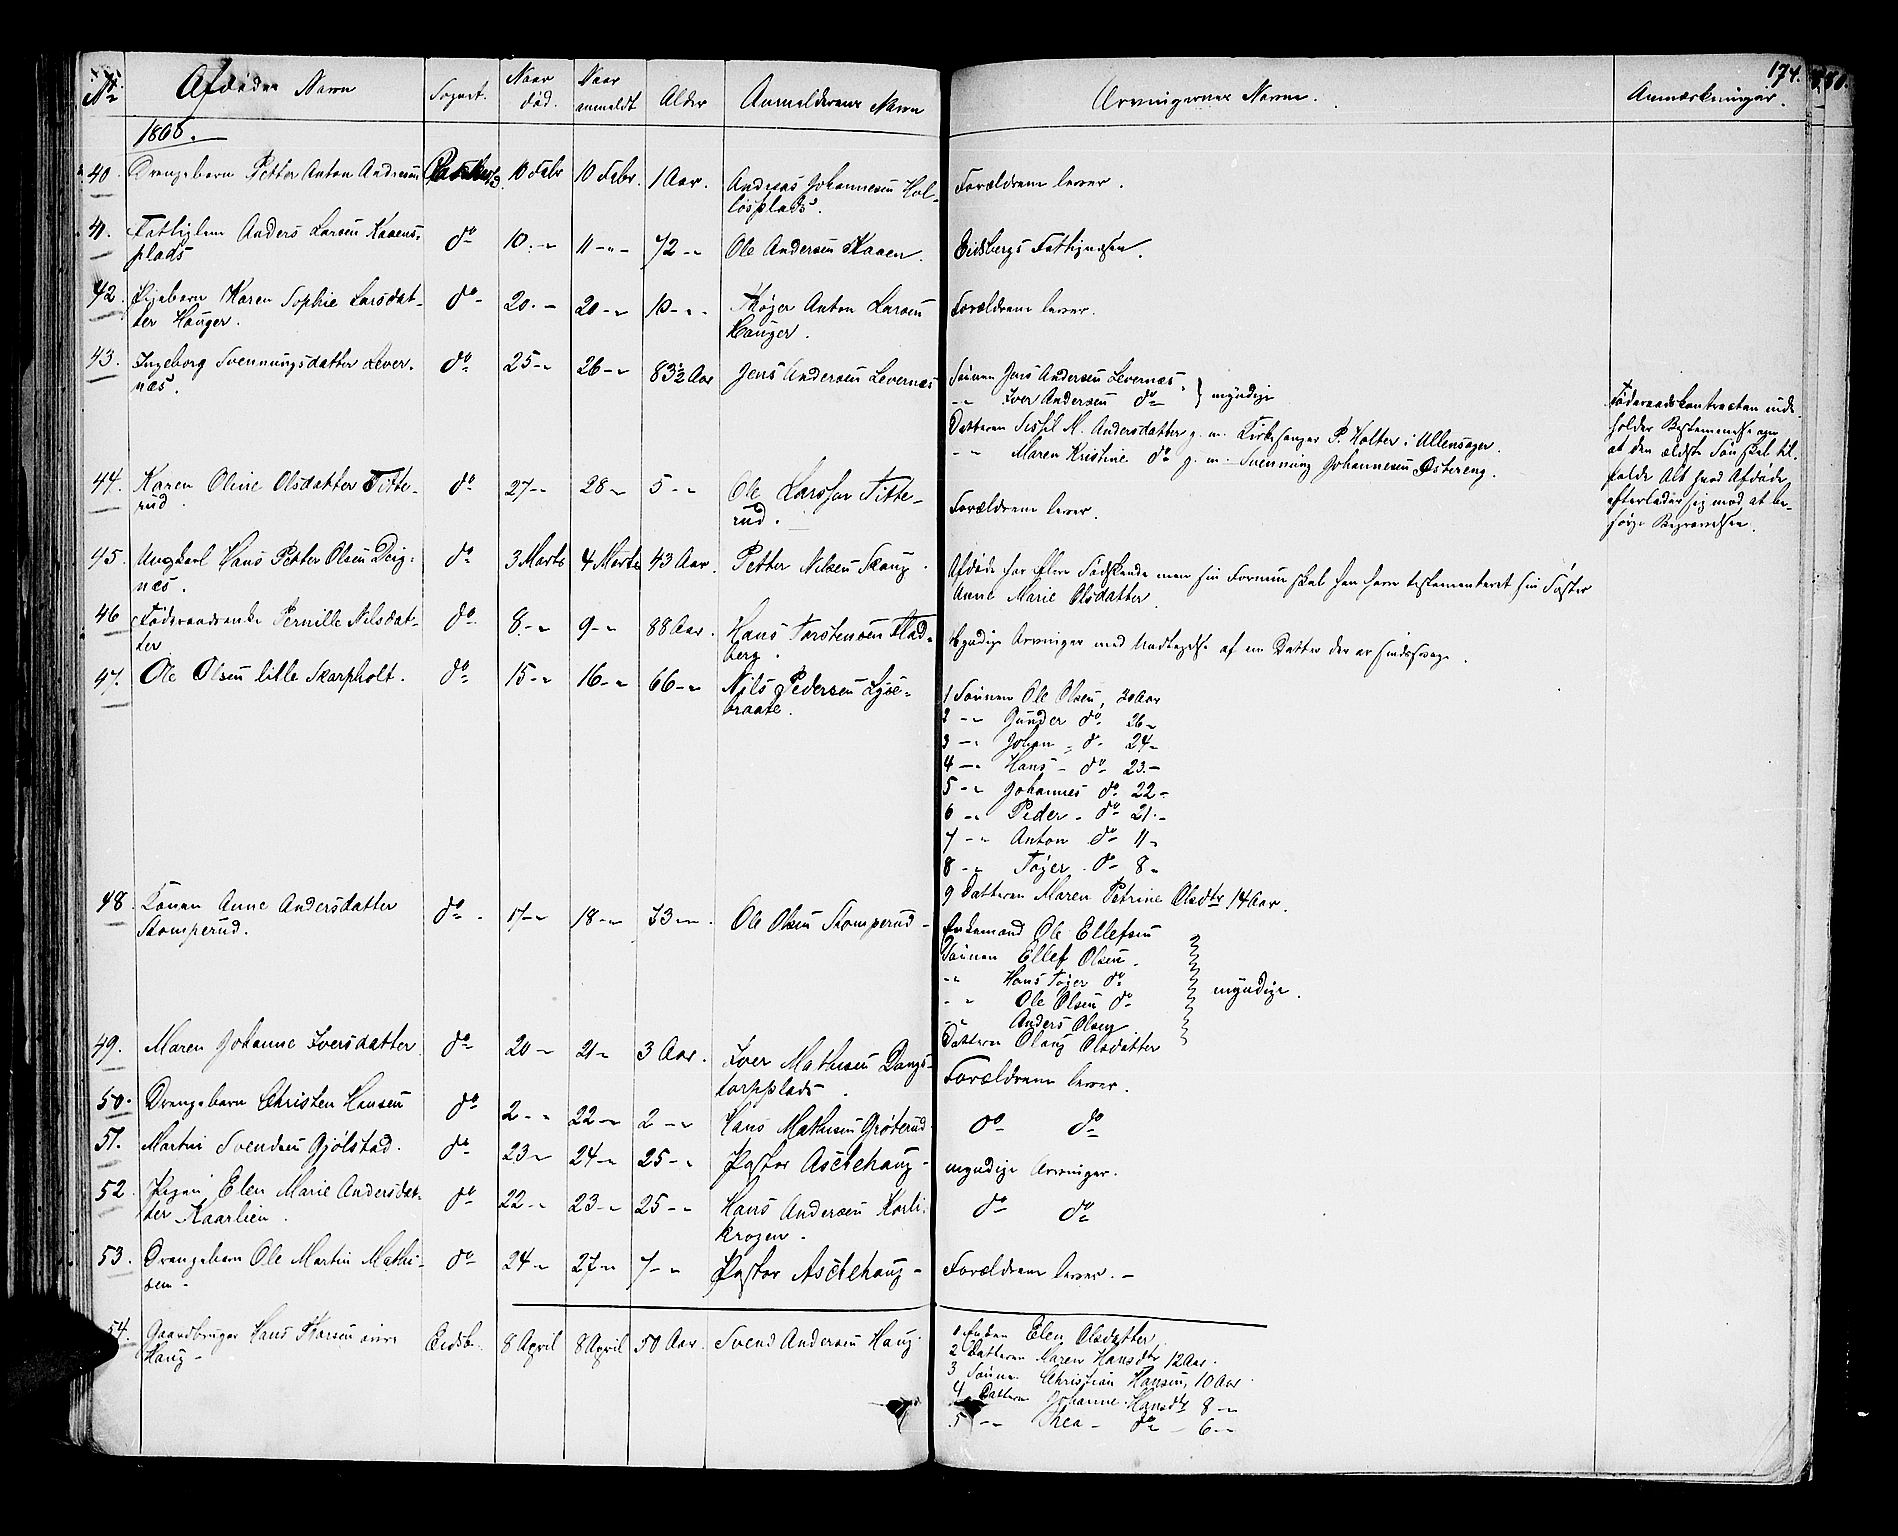 174.
No Afdødes Navn Sognet. Naar død. Naar anmeldt Alder Anmelderens Navn Arvingernes Navne. Anmærkninger.
40. Drengebarn Petter Anton Andresen 10 Febr 10 Febr. 1 Aar. Andreas Johannesen Hol-
løsplads. Forældrene lever.
41. Fattiglem Anders Larsen Kaaens-
plads do 10 -"- 11 -"- 72 -"- Ole Andersen Kaaen. Eidsbergs Fattigvæsen.
42. Pigebarn Karen Sophie Larsdat-
ter Hauger. do 20. - 20 -"- 10 -"- Thøger Anton Larsen
Hauger. Forældrene lever.
43. Ingeborg Svenningsdatter Lever-
næs. do 25 -"- 26 -"- 83½ Aar Jens Andersen Levernæs
Sønnen Jens Andersen Levernæs
-"- Iver Andersen do } myndige
Datteren Sissil M. Andersdatter g. m. Kirkesanger P. Holter i Ullensager.
-"- Maren Kristine do g. m. Svenning Johannesen Østereng.
Føderaadskontracten inde-
holder Bestemmelse om
at den ældste Søn skal til-
falde Alt hvad Afdøde
efterlader sig mod at be-
sørge Begravelsen.
44. Karen Oline Olsdatter Titte-
rud. do 27 -"- 28 -"- 5 -"- Ole Larssen Titte-
rud. Forældrene lever.
45. Ungkarl Hans Petter Olsen Deig-
næs. do 3 Marts 4 Marts 43 Aar. Petter Nilsen Skaug.
Afdøde har flere Sødskende men sin Formue skal han have testamenteret sin Søster
Anne Marie Olsdatter.
46 Føderaadsenke Pernille Nilsdat-
ter do 8. -"- 9 -"- 88 Aar. Hans Torstensen Flad-
berg. Myndige Arvinger med Undtagelse af en Datter der er sindssvag.
47. Ole Olsen lille Skarpholt. do 15 -"- 16 -"- 66 -"- Nils Pedersen Lyse-
braate.
1 Sønnen Ole Olsen, 30 Aar
2 -"- Gunder do 26 -
3 -"- Johan - do 24 -
4 -"- Hans - do 23. -
5 -"- Johannes do 22 -
6 -"- Peder - do 21. -
7 -"- Anton do 11 -
8 -"- Tøger - do 8 -
9 Datteren Maren Petrine Olsdtr 14 Aar.
48. Konen Anne Andersdatter
Stomperud. do 17 -"- 18 -"- 73 -"- Ole Olsen Stomperud -
Enkemand Ole Ellefsen
Sønnen Ellef Olsen.
-"- Hans Tøger do
-"- Ole Olsen do
-"- Anders Olsen
Datteren Olaug Olsdatter
myndige.
49. Maren Johanne Iversdatter do 20 - 21 - 3 Aar. Iver Mathisen Dangs-
torpplads. Forældrene lever.
50. Drengebarn Christen Hansen do 2 -"- 22 -"- 2 -"- Hans Mathisen Grøterud do do
51. Martin Svendsen Gjølstad. do 23 - 24 -"- 25 -"- Pastor Aschehaug - myndige Arvinger.
52 Pigen Elen Marie Andersdat-
ter Kaarlien. do 22 -"- 23 -"- 25 -"- Hans Andersen Korli-
krogen. do do
53. Drengebarn Ole Martin Mathi-
sen - do 24 -"- 27 -"- 7 -"- Pastor Aschehaug - Forældrene lever. -
54. Gaardbruger Hans Thorsen øvre
Haug - Eidsb. 8 April 8 April 50 Aar. Svend Andersen Haug
1 Enken Elen Olsdatter
2 Datteren Maren Hansdtr 12 Aar.
3 Sønnen Christian Hansen, 10 Aar.
4 Datteren Johanne Hansdtr 8 -"-
5 -"- Thea - do - 6 -"-